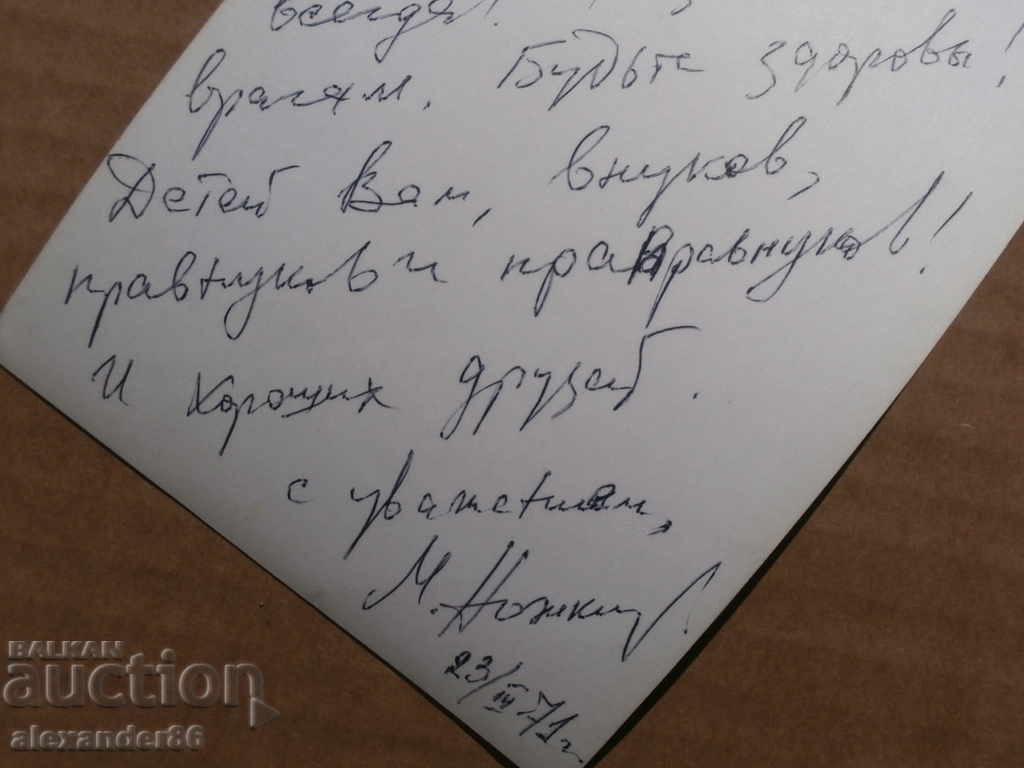 всегда!
врагам. Будьте здоровы!
Детей Вам, внуков,
правнуков и праправнуков!
И хороших друзей.
с уважением,
М. Ножкин!
23/III 71 г
BALKAN
auction
alexander86